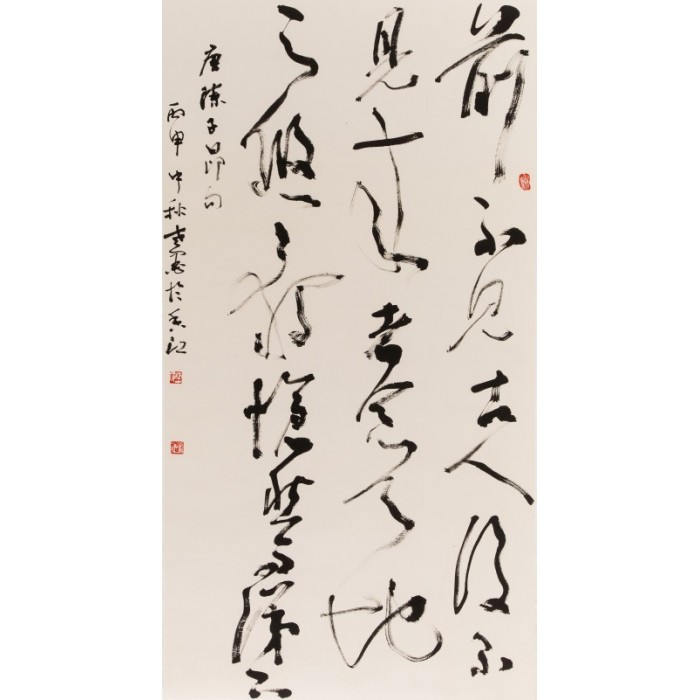 前不见古人后不
见来者念天地
之悠悠独怆然而涕下
唐陈子昂句
丙申中秋书于香江